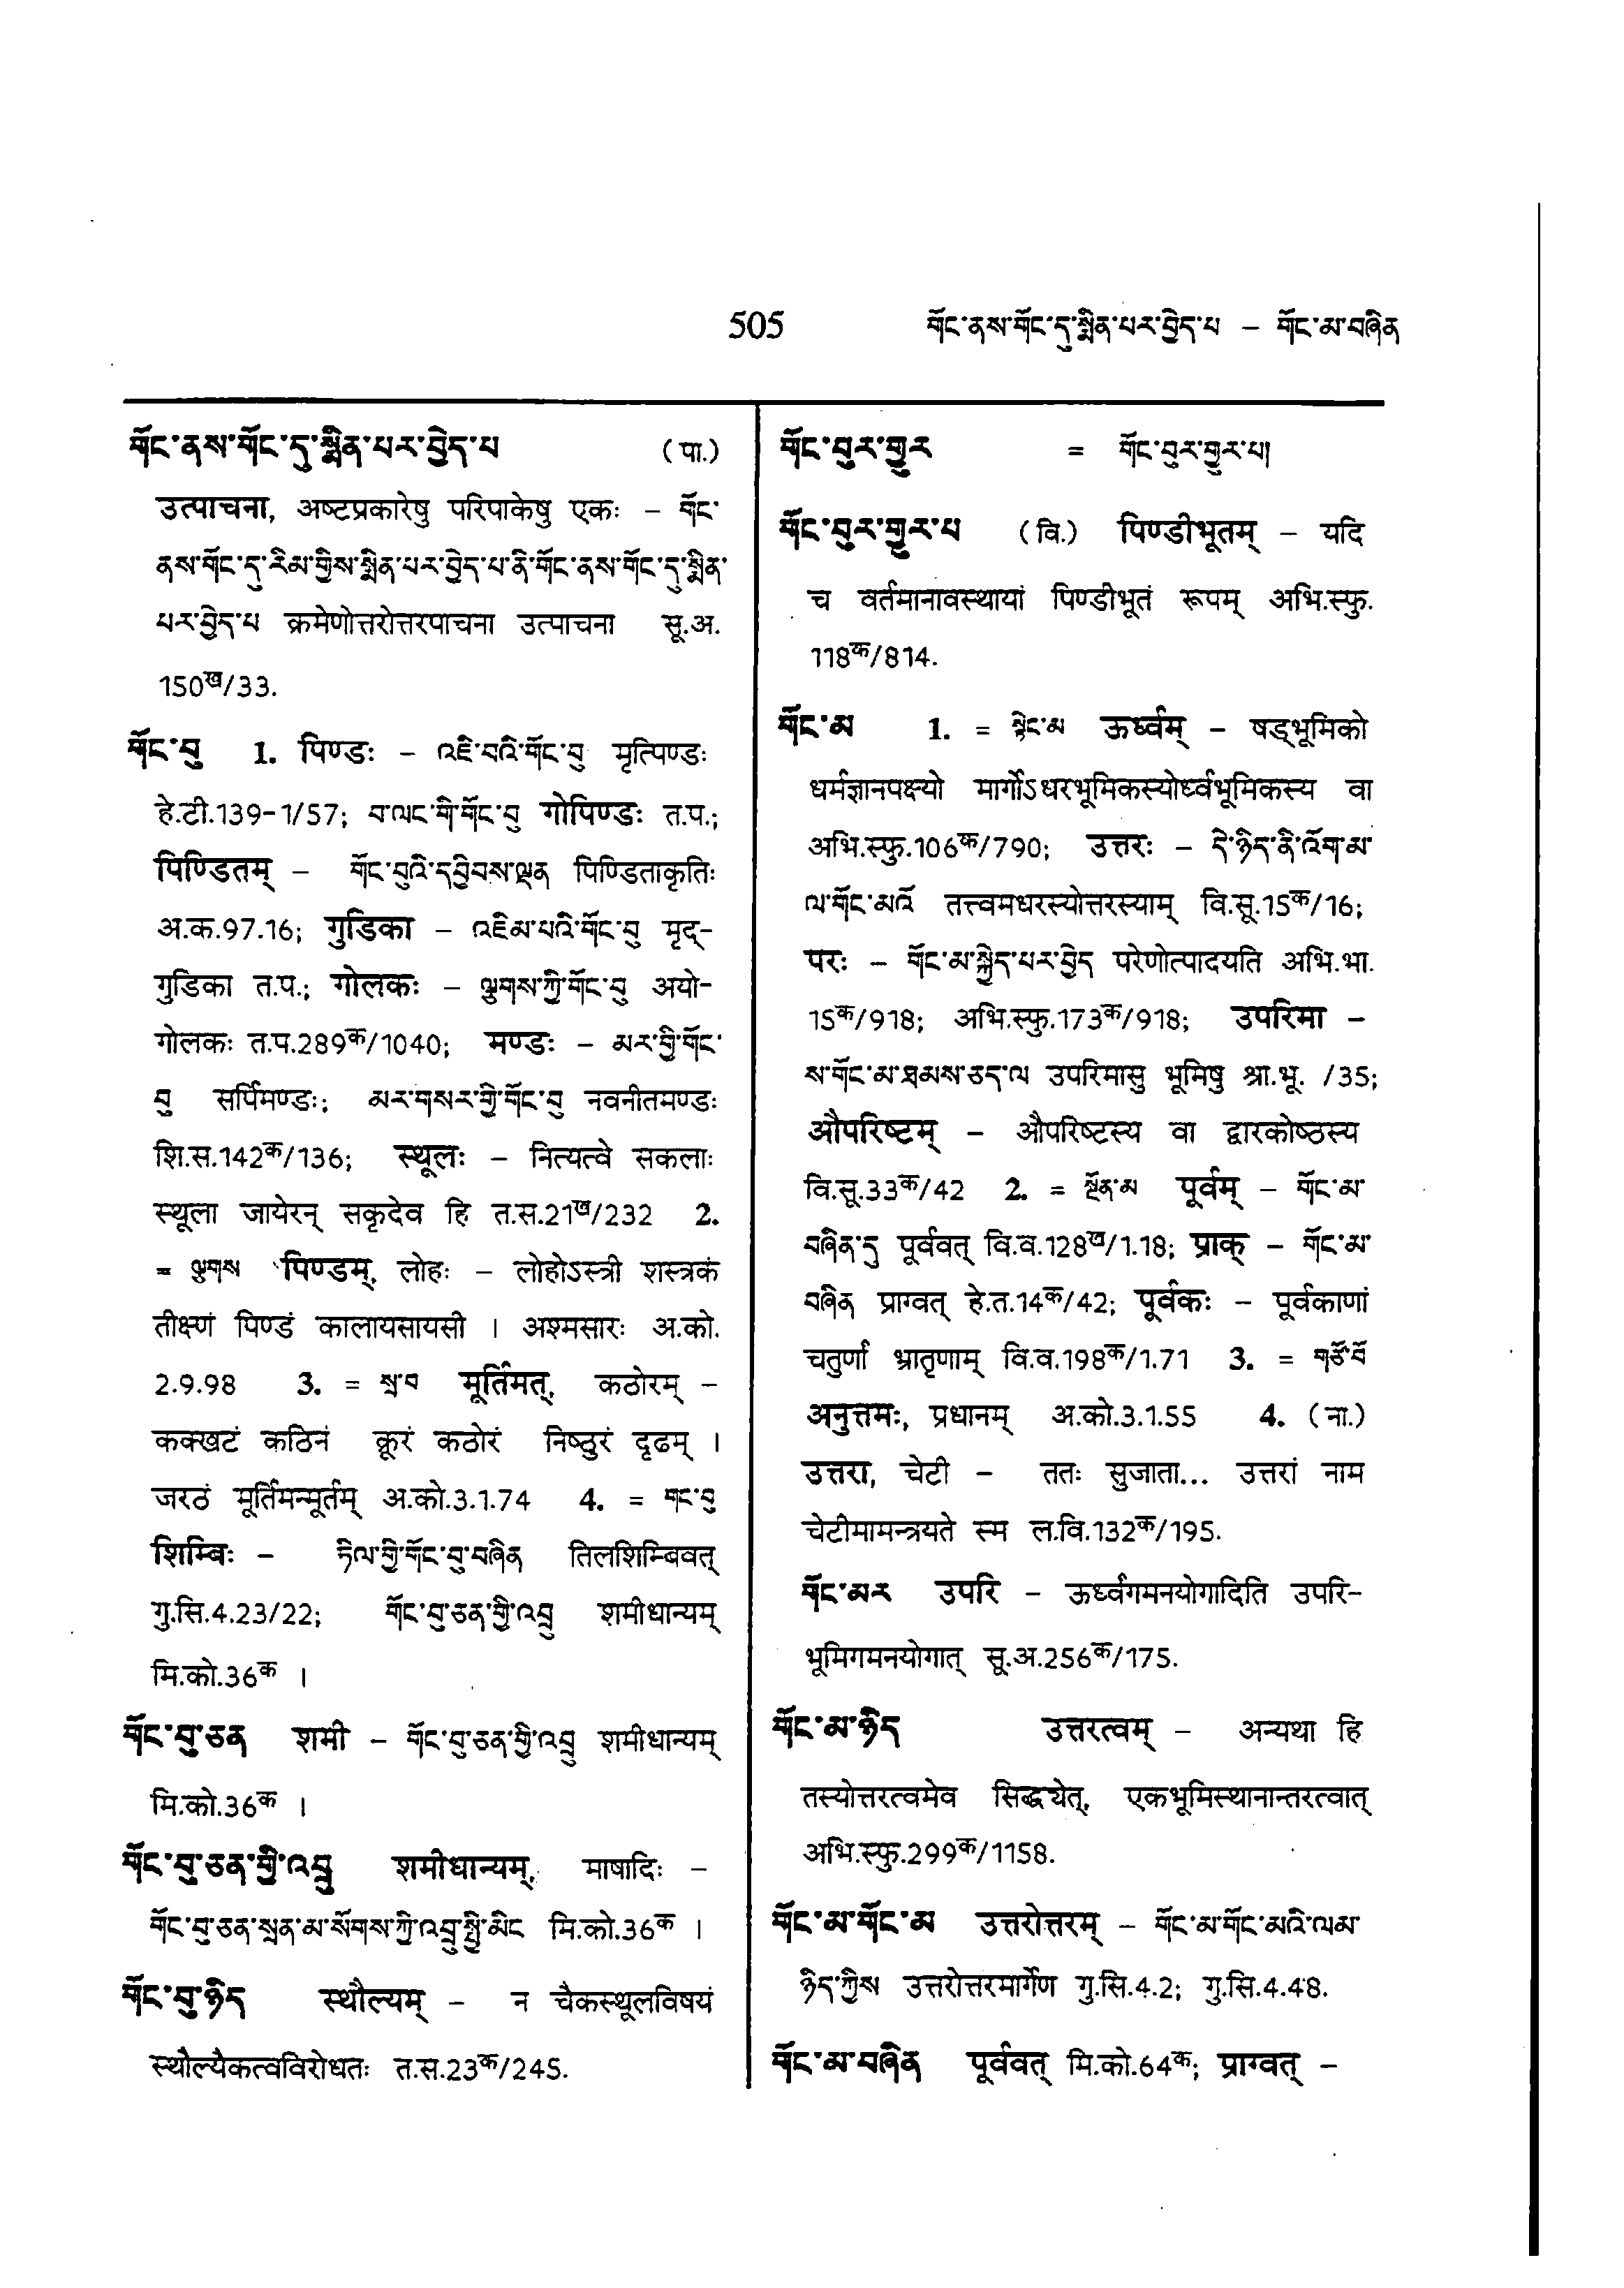 505 གོང་ནས་གོང་དུ་སྨིན་པར་བྱེད་པ – གོང་མ་བཞིན
གོང་ནས་གོང་དུ་སྨིན་པར་བྱེད་པ (पा.)
उत्पाचना, अष्टप्रकारेषु परिपाकेषु एकः – གོང་
ནས་གོང་དུ་རིམ་གྱིས་སྨིན་པར་བྱེད་པ་ནི་གོང་ནས་གོང་དུ་སྨིན་
པར་བྱེད་པ क्रमेणोत्तरोत्तरपाचना उत्पाचना सू.अ.
150ख/33.
གོང་བུ 1. पिण्डः – འཇི་བའི་གོང་བུ मृत्पिण्डः
हे.टी.139-1/57; བ་ལང་གི་གོང་བུ गोपिण्डः त.प.;
पिण्डितम् – གོང་བུའི་དབྱིབས་ལྡན पिण्डिताकृतिः
अ.क.97.16; गुडिका – འཇིམ་པའི་གོང་བུ मृद्-
गुडिका त.प.; गोलकः – ལྕགས་ཀྱི་གོང་བུ अयो-
गोलकः त.प.289क/1040; मण्डः – མར་གྱི་གོང་
བུ सर्पिमण्डः; མར་གསར་གྱི་གོང་བུ नवनीतमण्डः
शि.स.142क/136; स्थूलः – नित्यत्वे सकलाः
स्थूला जायेरन् सकृदेव हि त.स.21ख/232 2.
= ལྕགས पिण्डम्, लोहः – लोहोऽस्त्री शस्त्रकं
तीक्ष्णं पिण्डं कालायसायसी । अश्मसारः अ.को.
2.9.98 3. = སྲ་བ मूर्तिमत्, कठोरम् –
कक्खटं कठिनं क्रूरं कठोरं निष्ठुरं दृढम् ।
जरठं मूर्तिमन्मूर्तम् अ.को.3.1.74 4. = གང་བུ
शिम्बिः – ཏིལ་གྱི་གོང་བུ་བཞིན तिलशिम्बिवत्
गु.सि.4.23/22; གོང་བུ་ཅན་གྱི་འབྲུ शमीधान्यम्
मि.को.36क ।
གོང་བུ་ཅན शमी – གོང་བུ་ཅན་གྱི་འབྲུ शमीधान्यम्
मि.को.36क ।
གོང་བུ་ཅན་གྱི་འབྲུ शमीधान्यम्, माषादिः –
གོང་བུ་ཅན་སྲན་མ་སོགས་ཀྱི་འབྲུ་སྤྱི་མིང मि.को.36क ।
གོང་བུ་ཉིད स्थौल्यम् – न चैकस्थूलविषयं
स्थौल्यैकत्वविरोधतः त.स.23क/245.
གོང་བུར་གྱུར = གོང་བུར་གྱུར་པ།
གོང་བུར་གྱུར་པ (वि.) पिण्डीभूतम् – यदि
च वर्तमानावस्थायां पिण्डीभूतं रूपम् अभि.स्फु.
118क/814.
གོང་མ 1. = སྟེང་མ ऊर्ध्वम् – षड्भूमिको
धर्मज्ञानपक्ष्यो मार्गोऽधरभूमिकस्योर्ध्वभूमिकस्य वा
अभि.स्फु.106क/790; उत्तरः – དེ་ཉིད་ནི་འོག་མ་
ལ་གོང་མའོ तत्त्वमधरस्योत्तरस्याम् वि.सू.15क/16;
परः – གོང་མ་སྐྱེད་པར་བྱེད परेणोत्पादयति अभि.भा.
15क/918; अभि.स्फु.173क/918; उपरिमा –
ས་གོང་མ་ཐམས་ཅད་ལ उपरिमासु भूमिषु श्रा.भू. /35;
औपरिष्टम् – औपरिष्टस्य वा द्वारकोष्ठस्य
वि.सू.33क/42 2. = སྔོན་མ पूर्वम् – གོང་མ་
བཞིན་དུ पूर्ववत् वि.व.128ख/1.18; प्राक् – གོང་མ་
བཞིན प्राग्वत् हे.त.14क/42; पूर्वकः – पूर्वकाणां
चतुर्णां भ्रातृणाम् वि.व.198क/1.71 3. = གཙོ་བོ
अनुत्तमः, प्रधानम् अ.को.3.1.55 4. (ना.)
उत्तरा, चेटी – ततः सुजाता... उत्तरां नाम
चेटीमामन्त्रयते स्म ल.वि.132क/195.
གོང་མར उपरि – ऊर्ध्वगमनयोगादिति उपरि-
भूमिगमनयोगात् सू.अ.256क/175.
གོང་མ་ཉིད उत्तरत्वम् – अन्यथा हि
तस्योत्तरत्वमेव सिद्ध्येत्, एकभूमिस्थानान्तरत्वात्
अभि.स्फु.299क/1158.
གོང་མ་གོང་མ उत्तरोत्तरम् – གོང་མ་གོང་མའི་ལམ་
ཉིད་ཀྱིས उत्तरोत्तरमार्गेण गु.सि.4.2; गु.सि.4.48.
གོང་མ་བཞིན पूर्ववत् मि.को.64क; प्राग्वत् –